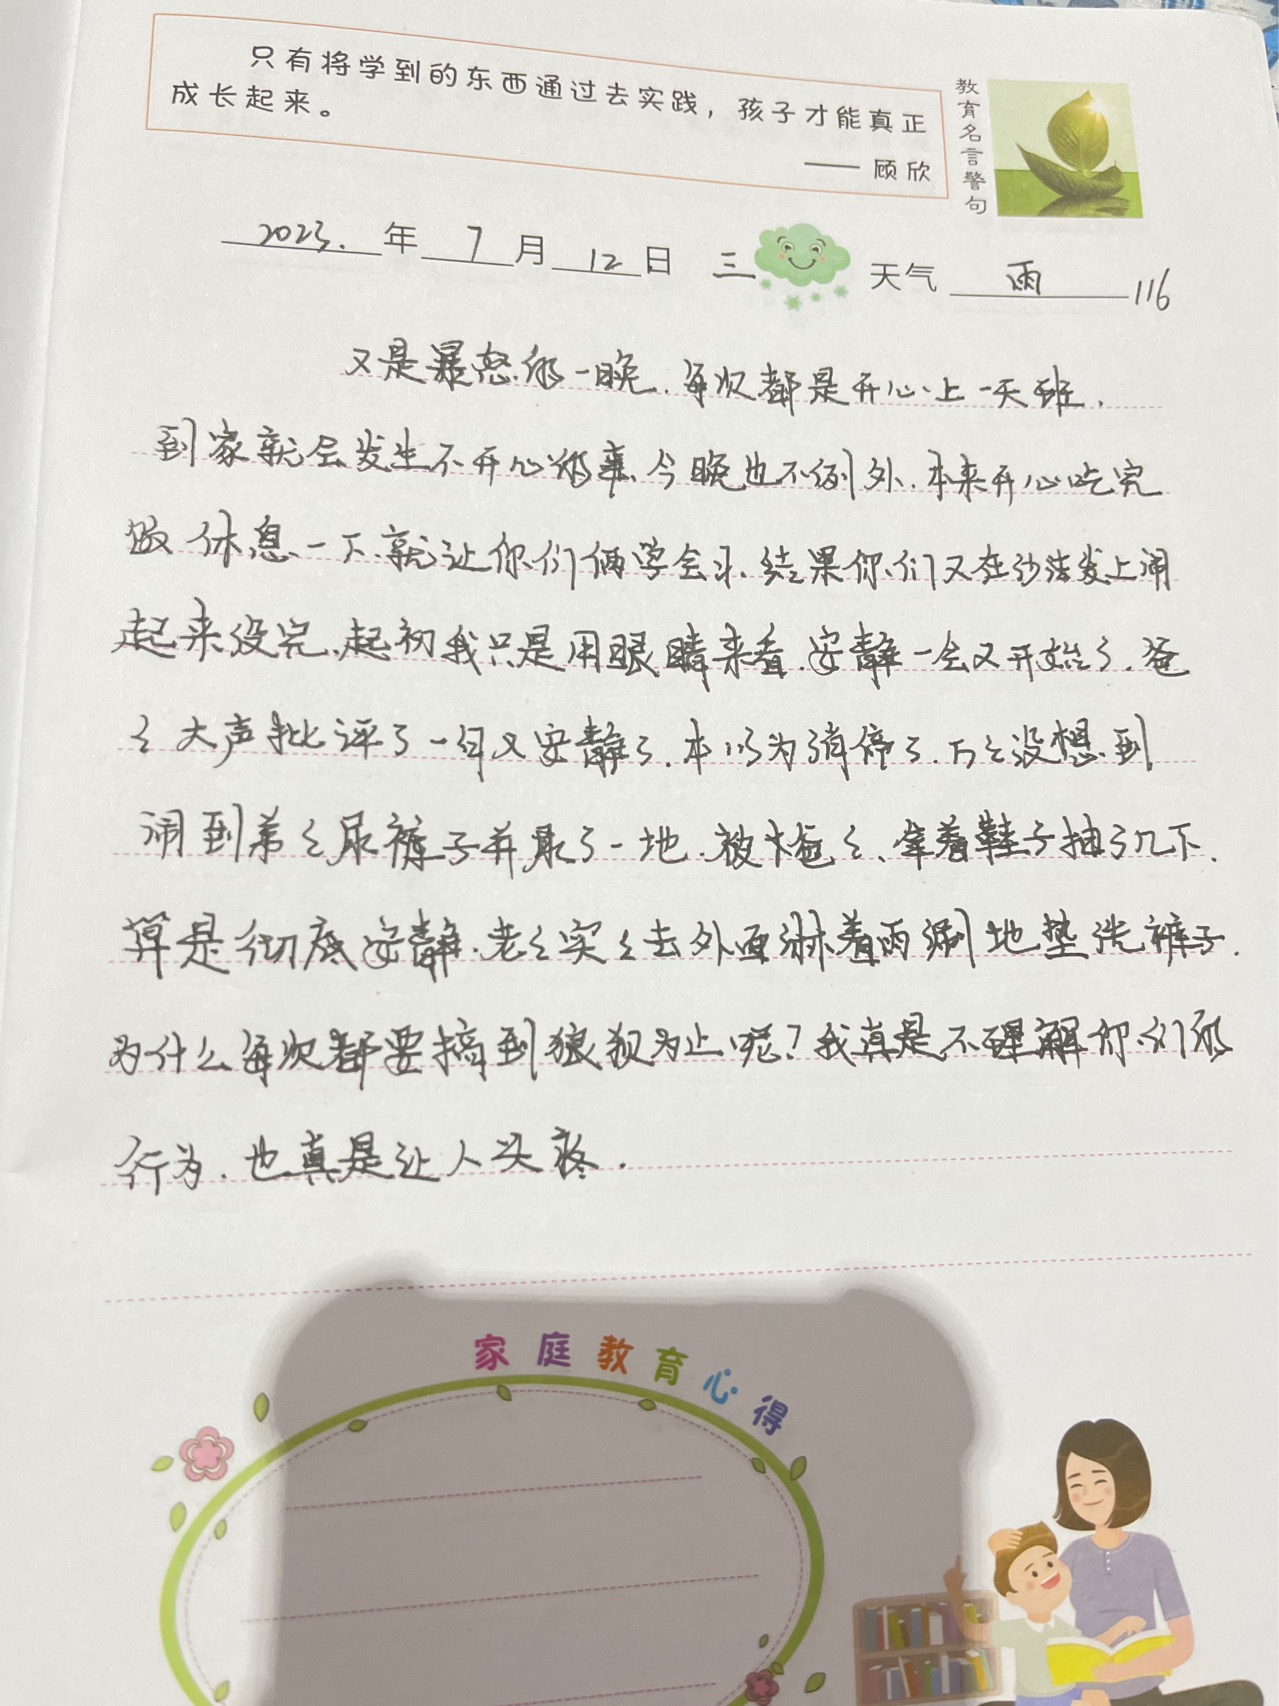 只有将学到的东西通过去实践，孩子才能真正
成长起来。
—— 顾欣
教育名言警句
2023. 年 7 月 12 日 三 天气 雨 116
又是暴怒的一晚.每次都是开心上一天班.
到家就会发生不开心的事.今晚也不例外.本来开心吃完
饭休息一下.就让你们俩学会习.结果你们又在沙发上闹
起来没完.起初我只是用眼睛来看.安静一会又开始了.爸
々大声批评了一句又安静了.本以为消停了.万々没想到
闹到弟々尿裤子并尿了一地.被爸々、拿着鞋子抽了几下.
算是彻底安静.老々实々去外面淋着雨涮地垫洗裤子.
为什么每次都要搞到狼狈为止呢?我真是不理解你们的
行为.也真是让人头疼.
家庭教育心得